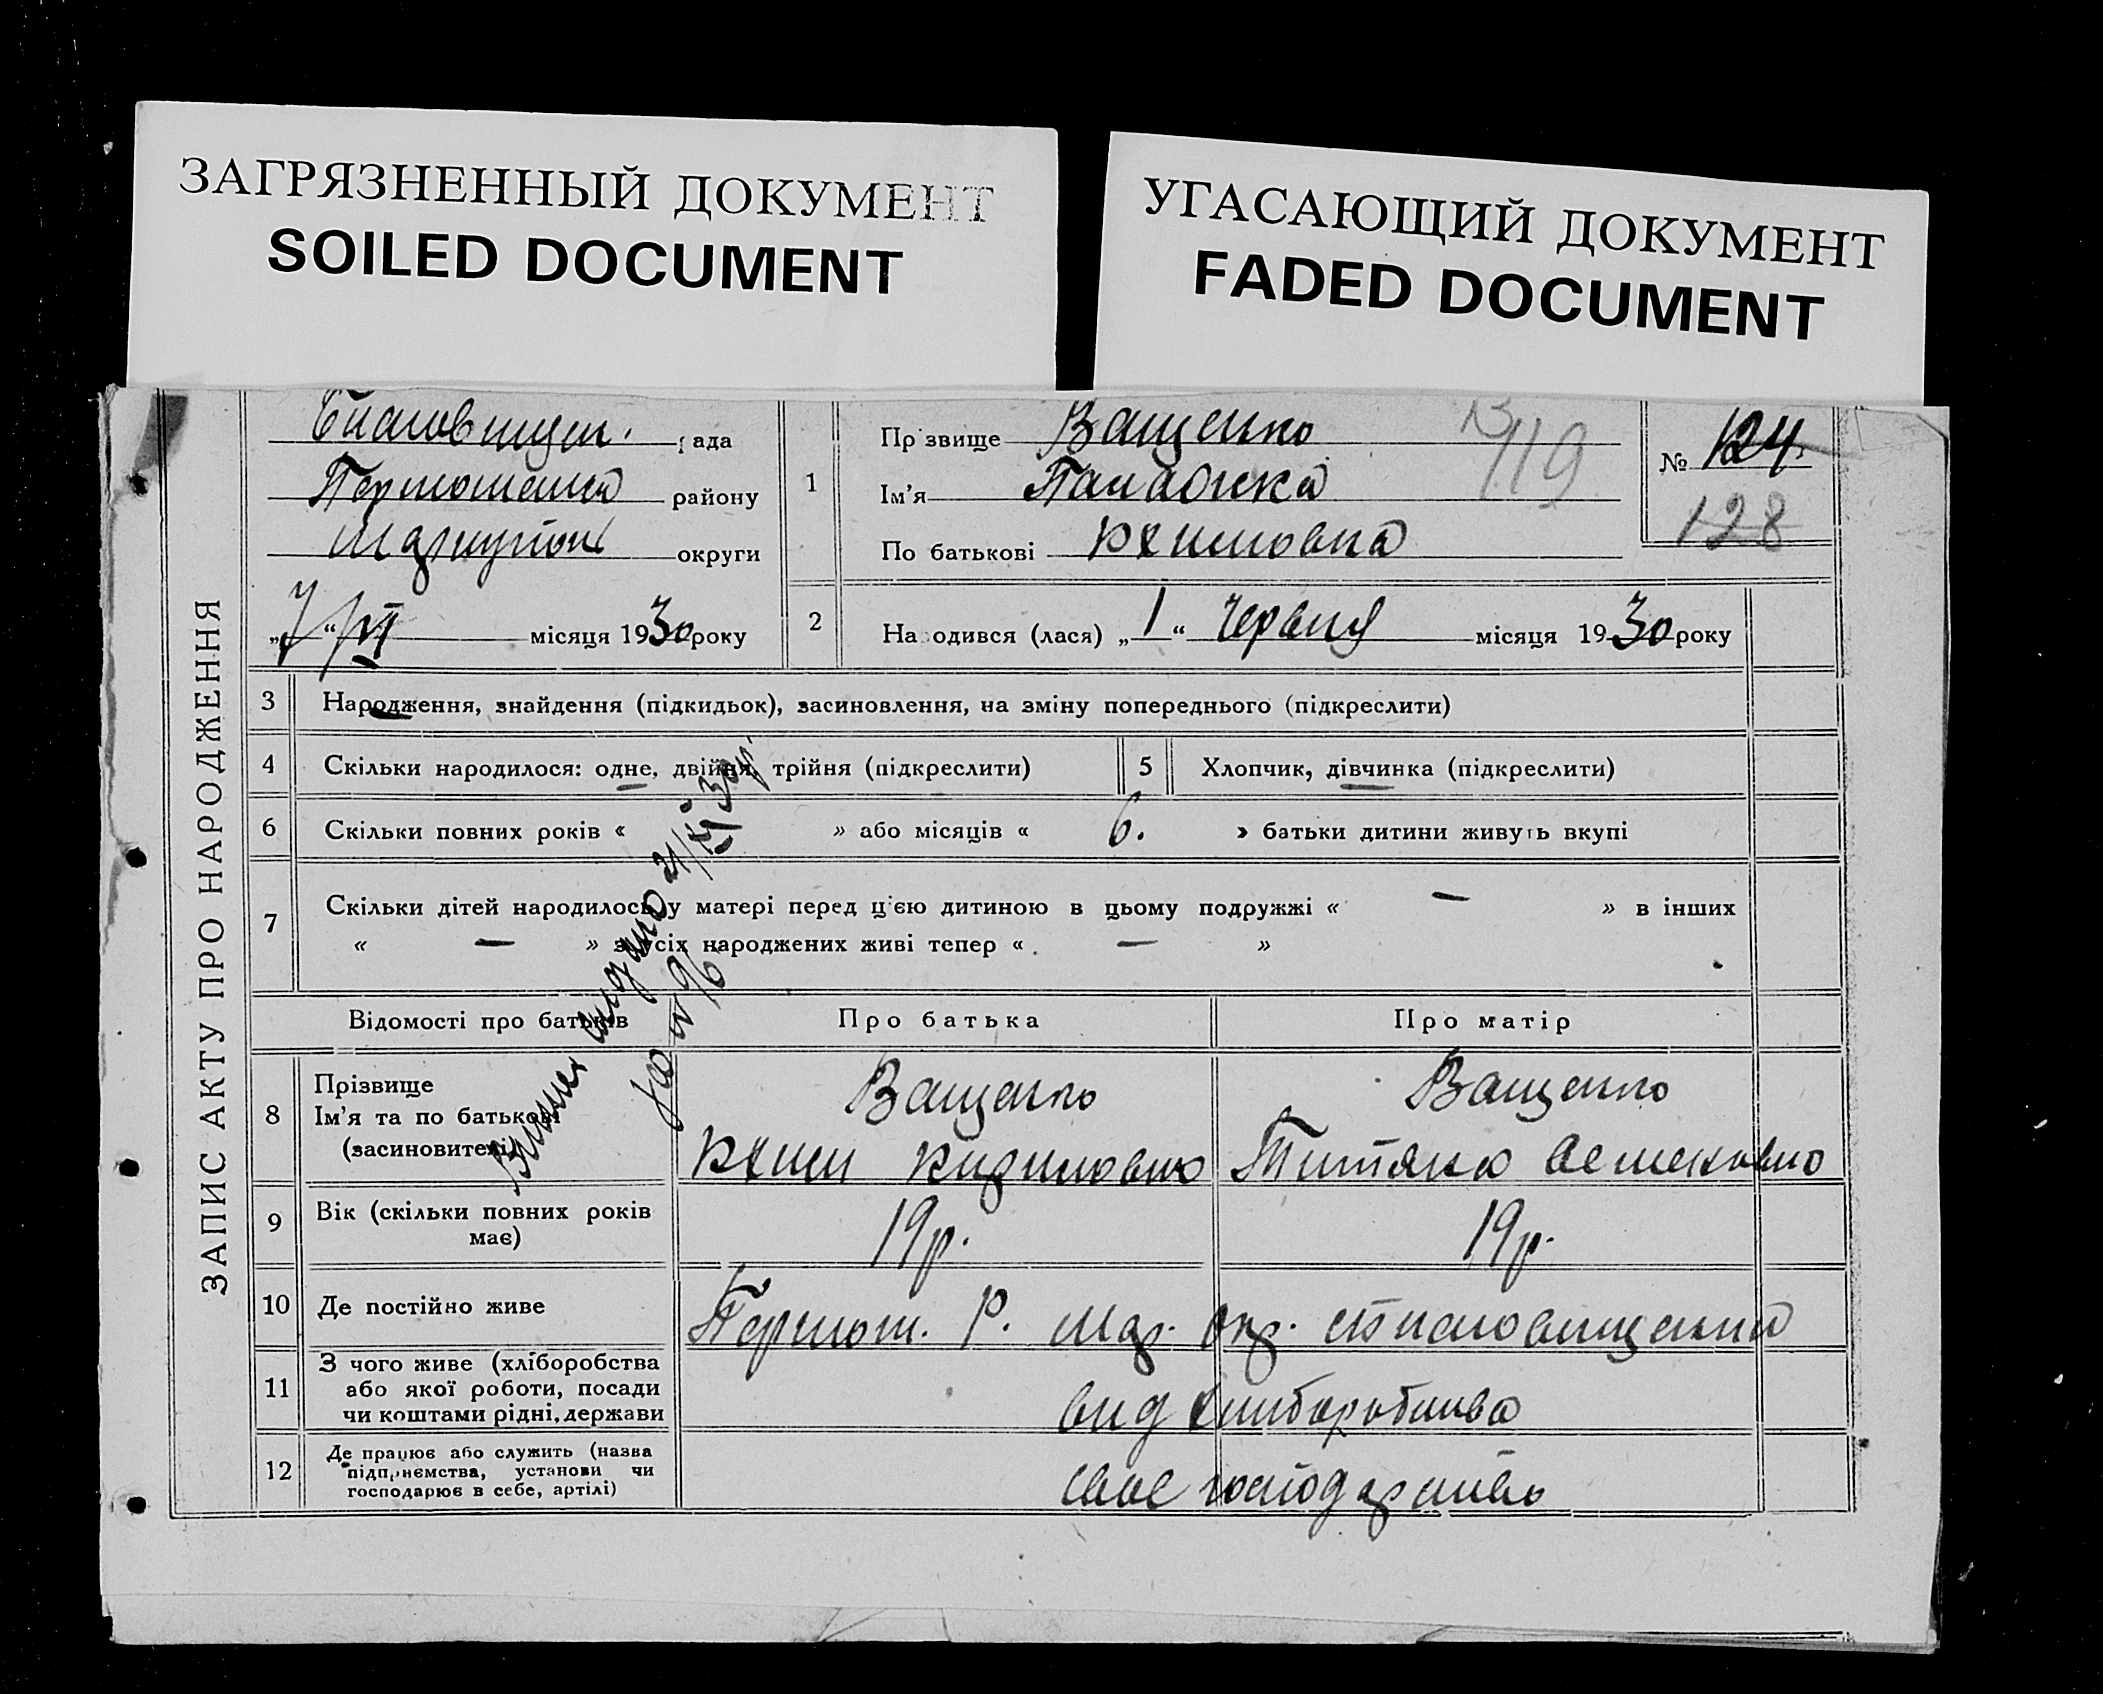 ЗАГРЯЗНЕННЫЙ ДОКУМЕНТ
SOILED DOCUMENT
УГАСАЮЩИЙ ДОКУМЕНТ
FADED DOCUMENT
ЗАПИС АКТУ ПРО НАРОДЖЕННЯ
рада
району
округи
„7“ VI місяця 1930 року
1
Прізвище Ващенко
Ім'я
По батькові
119
№ 124
128
2 Народився (лася) „1“ Червня місяця 1930 року
3 Народження, знайдення (підкидьок), засиновлення, на зміну попереднього (підкреслити)
4 Скільки народилося: одне, двійня, трійня (підкреслити)
5 Хлопчик, дівчинка (підкреслити)
6 Скільки повних років « » або місяців « 6. » батьки дитини живуть вкупі
7 Скільки дітей народилось у матері перед ц'єю дитиною в цьому подружжі « — » в інших
« — » з усіх народжених живі тепер « — »
Відомості про батьків
Про батька
Про матір
8 Прізвище
Ім'я та по батькові
(засиновителі)
Ващенко
Ващенко
9 Вік (скільки повних років
має)
19р.
19р.
10 Де постійно живе
Р. Мар. Окр.
11 З чого живе (хліборобства
або якої роботи, посади
чи коштами рідні, держави
вид хлиборобтива
12 Де працює або служить (назва
підприємства, установи чи
господарює в себе, артілі)
свое господарство